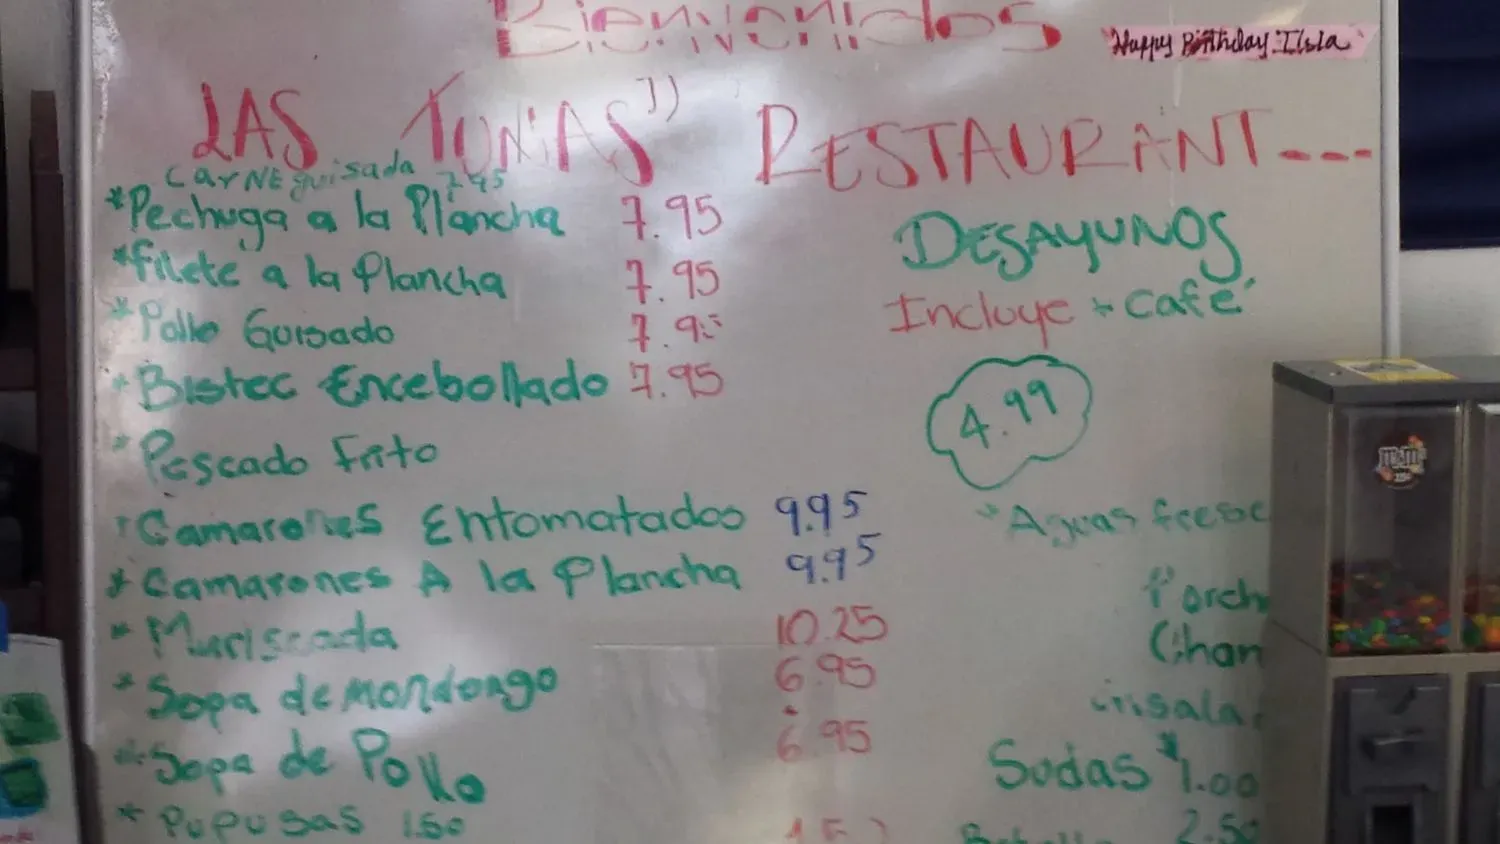 Bienvenidos
Happy Birthday Isla
LAS TUNAS" RESTAURANT---
Carne guisada 7.95
*Pechuga a la Plancha 7.95
*filete a la Plancha 7.95
*Pollo Guisado 7.95
*Bistec Encebollado 7.95
*Pescado frito
*Camarones Entomatados 9.95
*Camarones A la Plancha 9.95
*Mariscada 10.25
*Sopa de mondongo 6.95
*Sopa de Pollo 6.95
*Pupusas 1.50
DESAYUNOS
Incluye * Café
4.99
*Aguas fresc
Horch
Chan
ensala
Sodas *1.00
2.50
m&m